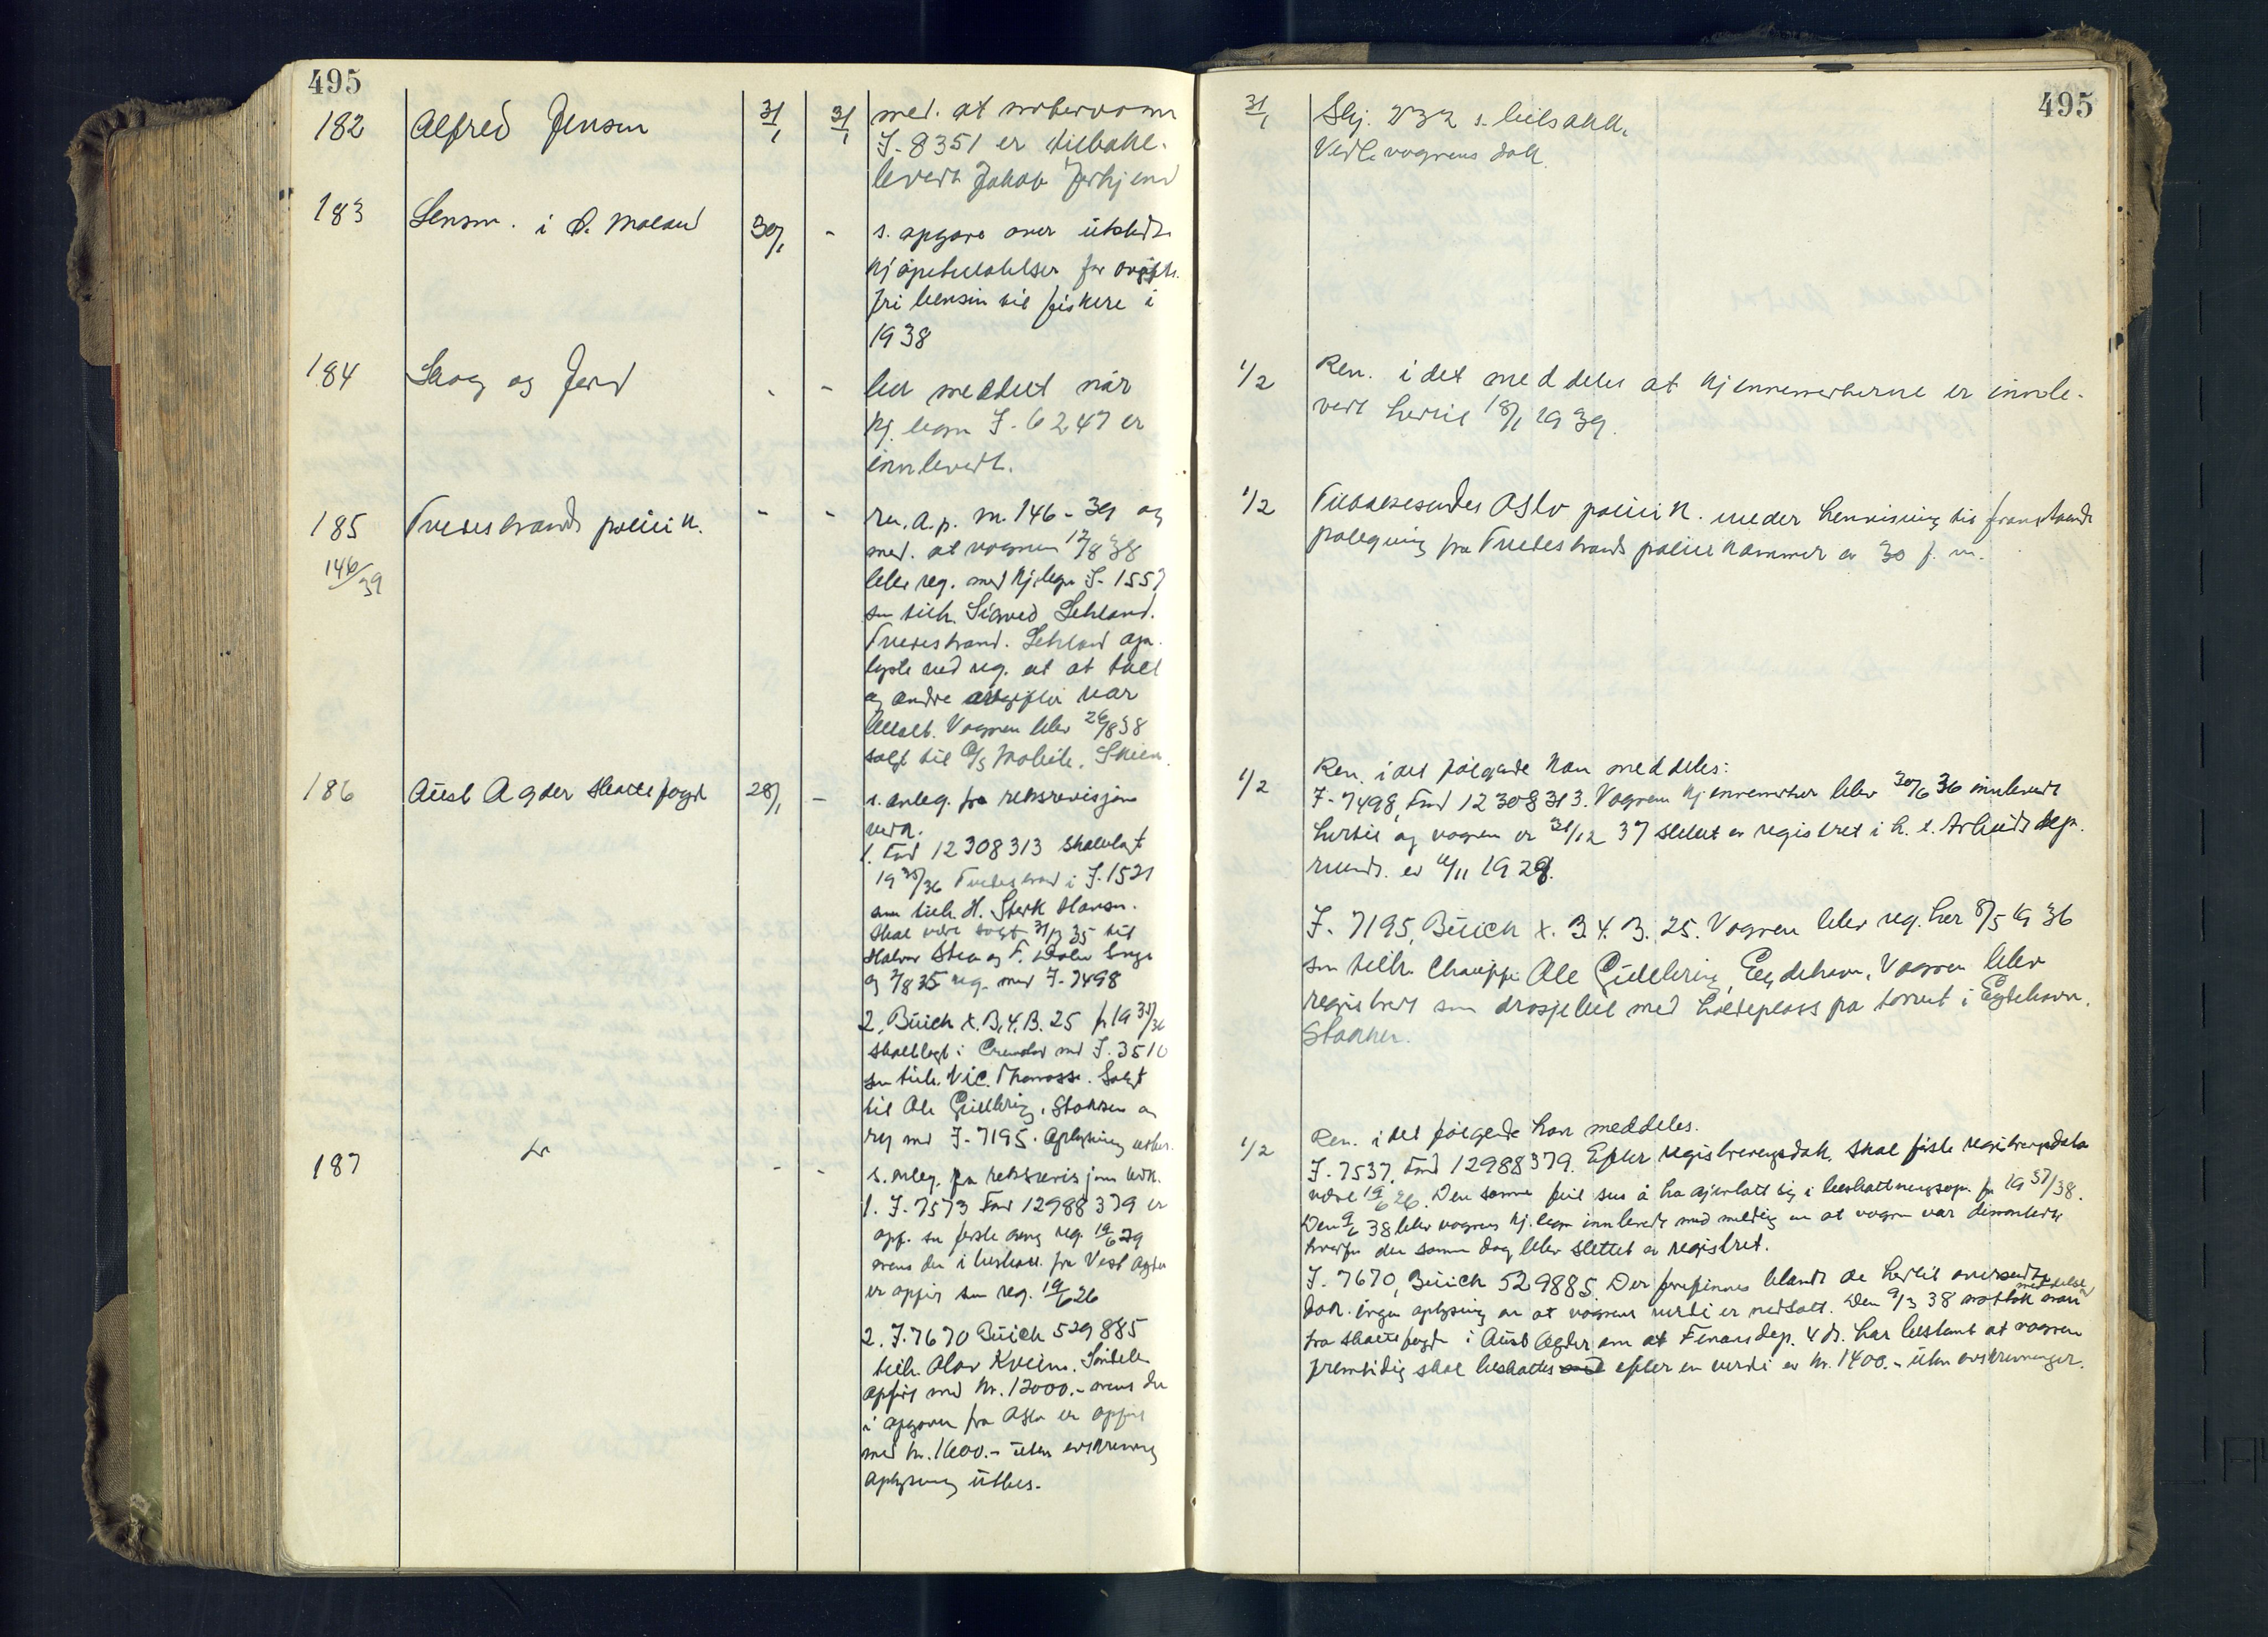 495
182 Alfred Jensen 31/1 31/1 med. at motorvogn
I-8351 er tilbake-
levert Jakob
183 Lensm. i Ø. Moland 30/1 - s. opgave over utstedte
kjøpetillatelser for avgifts-
fri bensin til fiskere i
1938
184 Skog og Jord - - ber meddelt når
kj. tegn I-6247 er
innlevert.
185 Tvedestrands polisik. - - rn. a.p. nr. 146-39 og
146/39
med. at vognen 12/8 38
blev reg. med kj.tegn I-1557
som tilh. Sigved Lekland.
Tvedestrand. Lekland op-
lyste ved reg. at at toll
og andre avgifter var
betalt. Vognen blev 26/8 38
solgt til A/S Mobile, Skien.
186 Aust Agder skattefogd 28/1 - s. anleg. fra riksrevisjons
vedk.
1. Ford 12308313 skattlagt
19 35/36 Tvedestrand i I.1521
som tilh. H. Sterk Hansen.
Skal være solgt 31/7 35 til
Halvor Stea og T.
og 7/8 35 reg. med I-7498
2. Buick X.B.4.B.25 for 19 35/36
skattlagt i Grimstad med I.3510
som tilh. Vic. Thomasse. Solgt
til Ole Gullbring, Stokken og
reg med I-7195. Oplysning utbes.
187 do - - s. anleg. fra riksrevisjons vedk.
1. I-7573 Ford 12988379 er
opf. som første gang reg. 19/6 29
mens den i beskatt. fra Vest Agder
er opført som reg. 19/6 26
2. I.7670 Buick 529885
tilh. Olav Kveim,
opført med kr. 12000.- mens den
i opgaven fra Oslo er opført
med kr. 1600.- uten avskrivning
oplysning utbes.
495
31/1 Skj. 232 s. bilsakk.
Vedl. vognens dok.
1/2 Ren. idet meddeles at kjennemerkerne er innle-
vert hertil 18/1 1939.
1/2 Tilbakesendes Oslo polisik. under henvisning til foranstående
påtegning fra Tvedestrands polisikammer av 30 f. m.
1/2 Ren. idet følgende kan meddeles:
I-7498, Ford 12308313. Vognens kjennemerker blev 30/6 36 innlevert
hertil og vognen er 31/12 37 slettet av registret i h. t. Arbeidsdep.
runds. av 16/11 1928.
I-7195, Buick X.B4.B.25. Vognen blev reg. her 8/5 1936
som tilh. Chauffør Ole Gullbring, Eydehavn. Vognen blev
registrert som drosjebil med holdeplass på torvet i Eydehavn.
Stokken.
1/2 Ren. idet følgende kan meddeles.
I-7537, Ford 12988379. Efter registreringsdok. skal første registreringsdato
være 19/6 26. Den samme feil sees å ha gjentatt sig i beskattningsop. for 1937/38.
Den 9/6 38 blev vognens kj.tegn innlevert med melding om at vognen var demontert
hvorfor den samme dag blev slettet av registret.
I.7670, Buick 529885. Der forefinnes blandt de hertil oversendte
dok. ingen oplysning om at vognens verdi er nedsatt. Den 9/3 38 mottok man meddelelse
fra skattefogden i Aust Agder om at Finansdep. 4 ds. har bestemt at vognen
fremtidig skal beskattes med efter en verdi av kr. 1400.- uten avskrivninger.